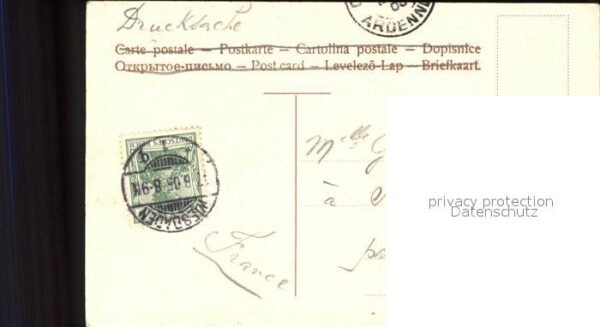 Drucksache
ARDENNE
Carte postale — Postkarte — Cartolina postale — Dopisnice
Открытое-письмо — Post card — Levelező-Lap — Briefkaart.
DEUTSCHES REICH
WIESBADEN
8-9N
Mlle
à
France
privacy protection
Datenschutz